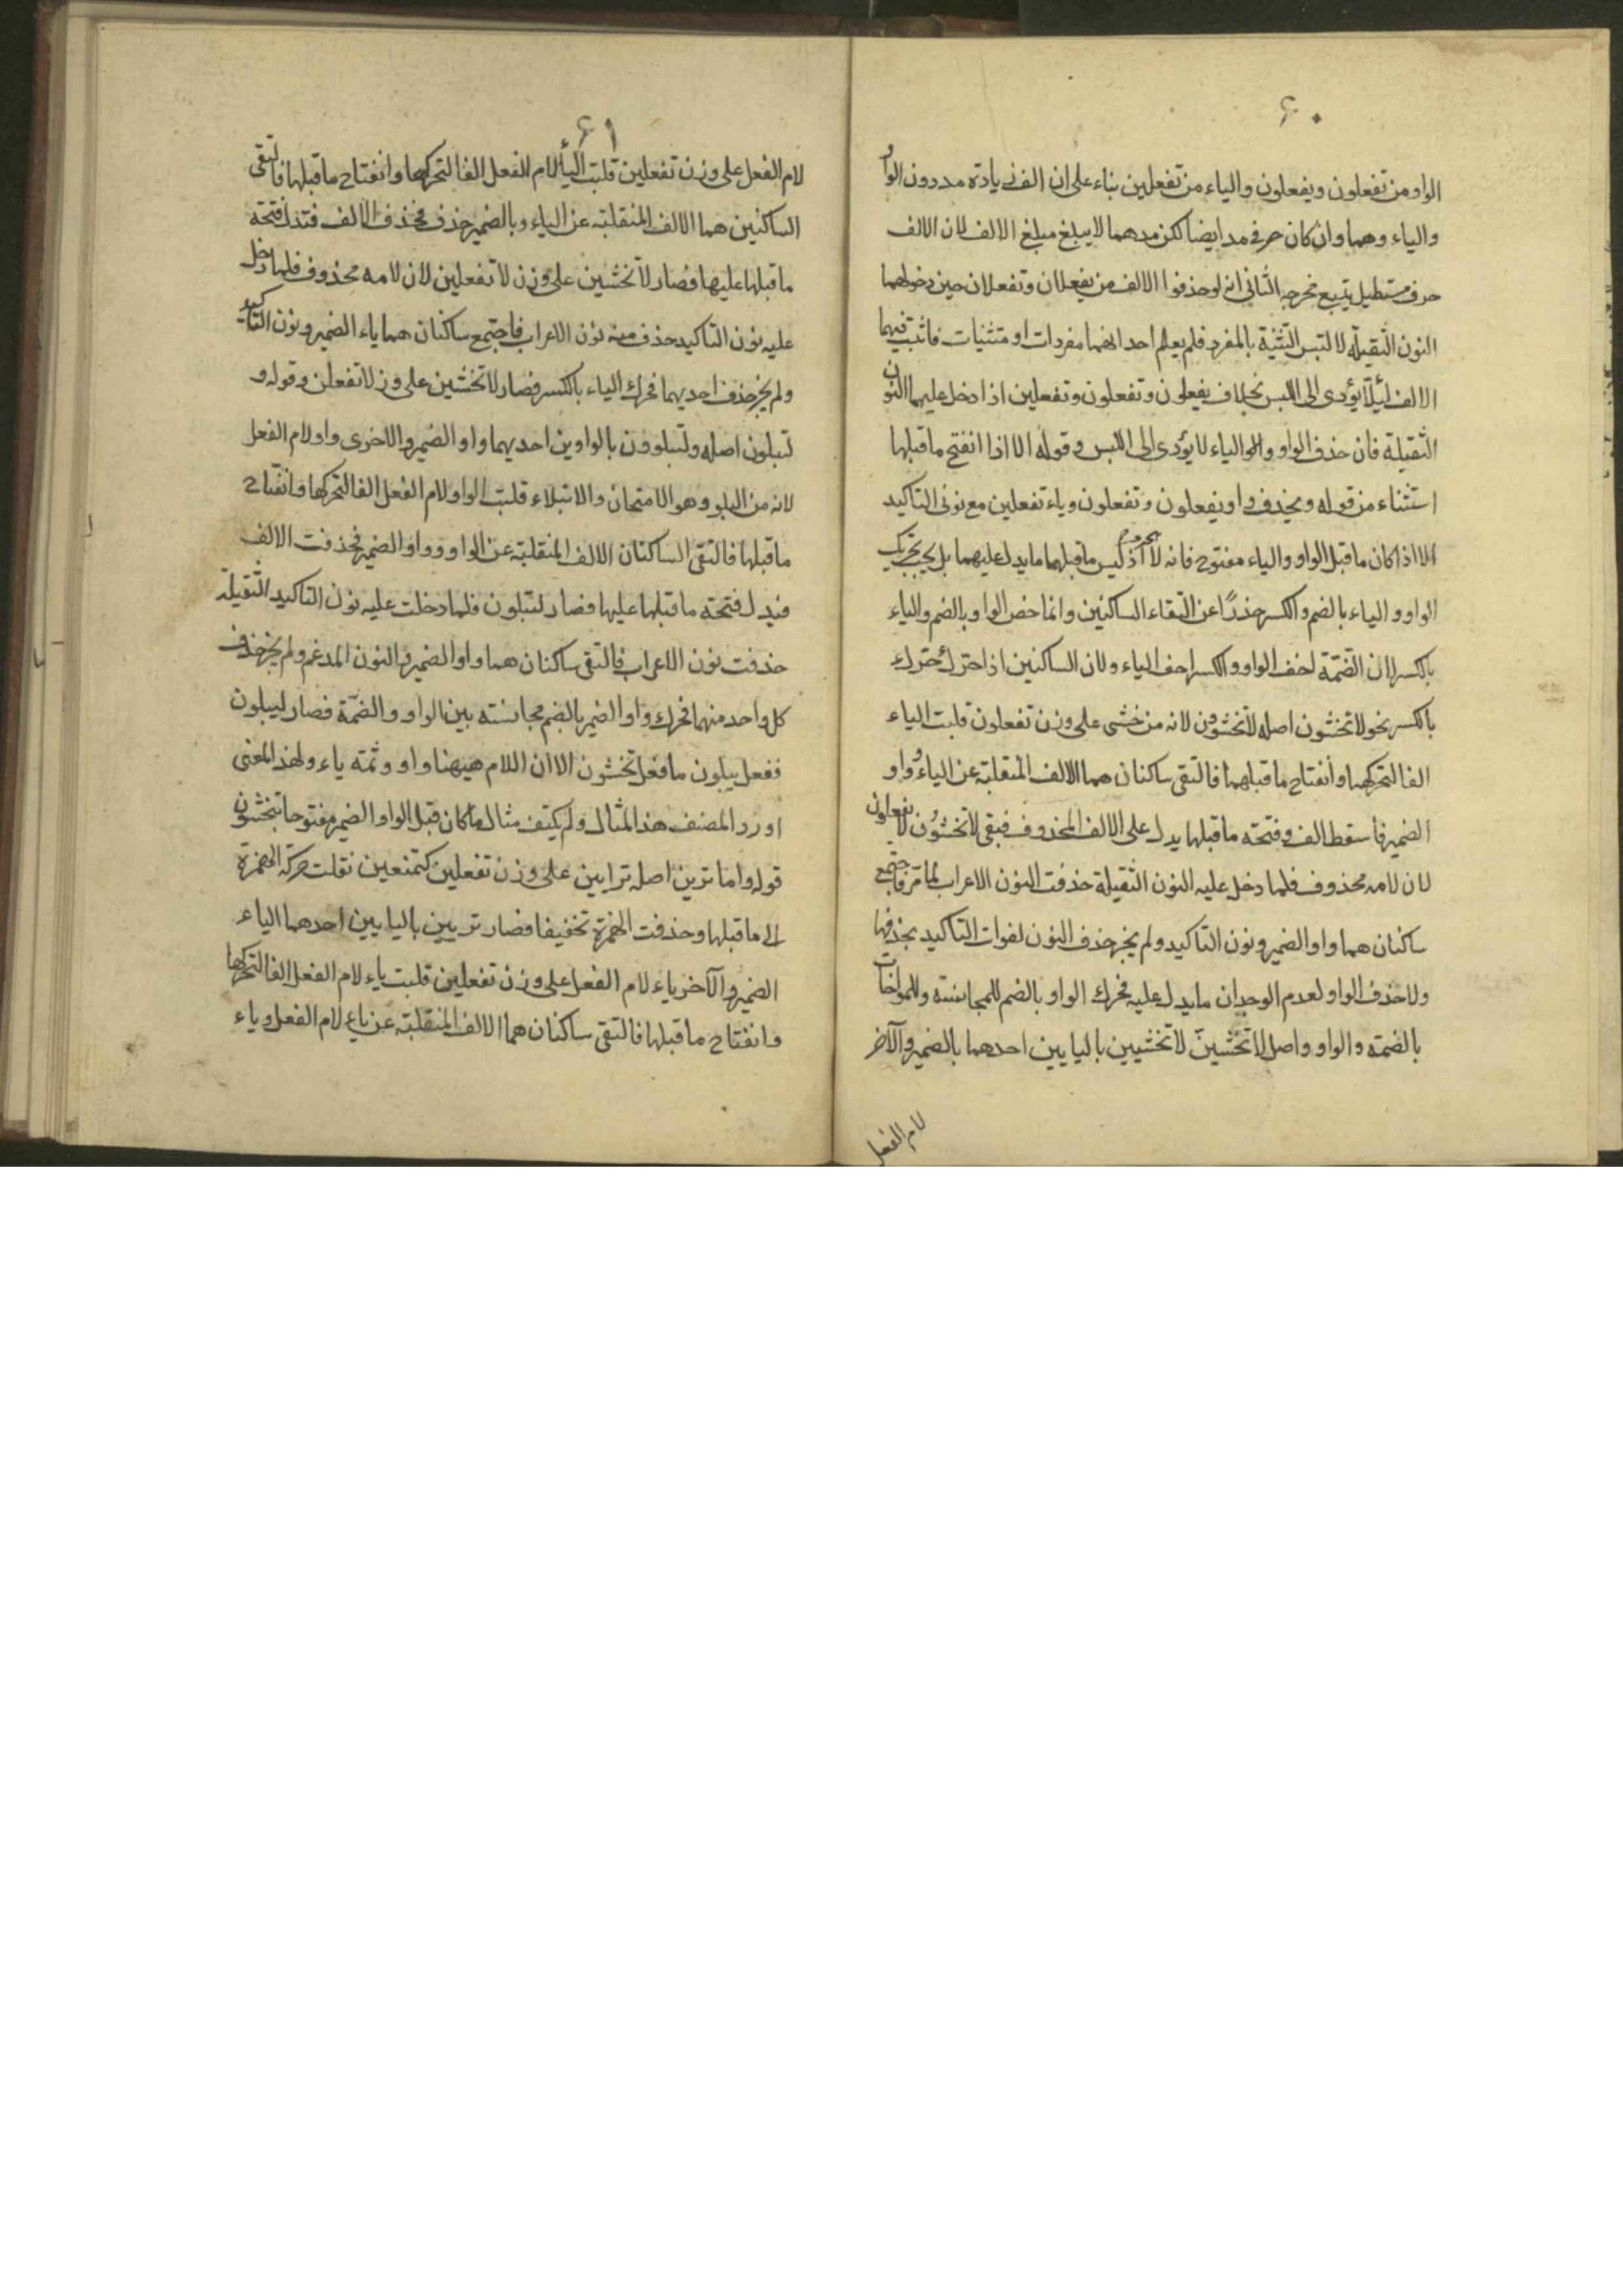 ۶۰
الواو من تفعلون ويفعلون والياء من تفعلين بناء على ان الف زيادة مد دون الواو
والياء وهما وان كان حرفى مد ايضا لكن مدهما لا يبلغ مبلغ الالف لان الالف
حرف مستطيل يتبع مخرجه الثانى انه لو حذفوا الالف من يفعلان وتفعلان حين دخولهما
النون الثقيلة لالتبس التثنية بالمفرد فلم يعلم احد انهما مفردات او متثنيات فاثبت فيهما
الالف لئلا يؤدى الى اللبس بخلاف يفعلون وتفعلون وتفعلين اذا دخل عليهما النون
الثقيلة فان حذف الواو والياء لا يؤدى الى اللبس وقوله الا اذا انفتح ماقبلها
استثناء من قوله ويحذف واو يفعلون وتفعلون وياء تفعلين مع نونى التاكيد
الا اذا كان ماقبل الواو والياء مفتوح فانه لا اذ ليس ماقبلهما ما يدل عليهما بل يجب تحريك
الواو والياء بالضم والكسر حذرًا عن التقاء الساكنين وانما خص الواو بالضم والياء
بالكسر لان الضمّة اخف الواو والكسر اخف الياء ولان الساكنين اذا حرّك حرّك
بالكسر نحو لا تخشون اصله لا تخشوون لانه من خشى على وزن تفعلون قلبت الياء
الفا لتحركها وانفتاح ماقبلهما فالتقى ساكنان هما الالف المنقلبة عن الياء وواو
الضمير فاسقط الف وفتحة ماقبلها يدل على الالف المحذوف فبقى لا تخشون لا يفعلون
لان لامه محذوف فلما دخل عليه النون الثقيلة حذفت النون الاعراب لما مر فاجتمع
ساكنان هما واو الضمير ونون التاكيد ولم يجز حذف النون لفوات التاكيد بحذفها
ولا حذف الواو لعدم الوجدان ما يدل عليه فحرك الواو بالضم للمجانسته وللمواخات
بالضمة والواو واصل لا تخشين لا تخشيين باليايين احدهما بالضمير والآخر
لام الفعل
۶۱
لام الفعل على وزن تفعلين قلبت اليأ لام الفعل الفا لتحركها وانفتاح ماقبلها فالتقى
الساكنين هما الالف المنقلبة عن الياء وبالضمير حذف فحذف الالف فتدل فتحة
ماقبلها عليها فصار لا تخشين على وزن لا تفعلين لان لامه محذوف فلما دخل
عليه نون التاكيد حذف منه نون الاعراب فاجتمع ساكنان هما ياء الضمير ونون التاكيد
ولم يجز حذف احديهما فحرك الياء بالكسر فصار لا تخشين على وزن لا تفعلن وقوله و
لتبلون اصله ولتبلوون بالواوين احديهما واو الضمير والاخرى واو لام الفعل
لانه من البلو وهو الامتحان والابتلاء قلبت الواو لام الفعل الفا لتحركها وانفتاح
ماقبلها فالتقى الساكنان الالف المنقلبة عن الواو وواو الضمير فحذفت الالف
فيدل فتحة ماقبلها عليها فصار لتبلون فلما دخلت عليه نون التاكيد الثقيلة
حذفت نون الاعراب فالتقى ساكنان هما واو الضمير والنون المدغم ولم يجز حذف
كل واحد منهما فحرك واو الضمير بالضم مجانسته بين الواو والضمّة فصار ليبلون
ففعل يبلون مافعل تخشون الا ان اللام هيهنا واو وثمّة ياء ولهذ المعنى
اورد المصنف هذ المثال ولم يكتف مثال ماكان قبل الواو الضمير مفتوحا بتخشون
قوله واما ترين اصله ترايين على وزن تفعلين كتمنعين نقلت حركة الهمزة
الى ماقبلها وحذفت الهمزة تخفيفا فصار تريين باليايين احدهما الياء
الضمير والآخر ياء لام الفعل على وزن تفعلين قلبت ياء لام الفعل الفا لتحركها
وانفتاح ماقبلها فالتقى ساكنان هما الالف المنقلبة عن ياء لام الفعل وياء